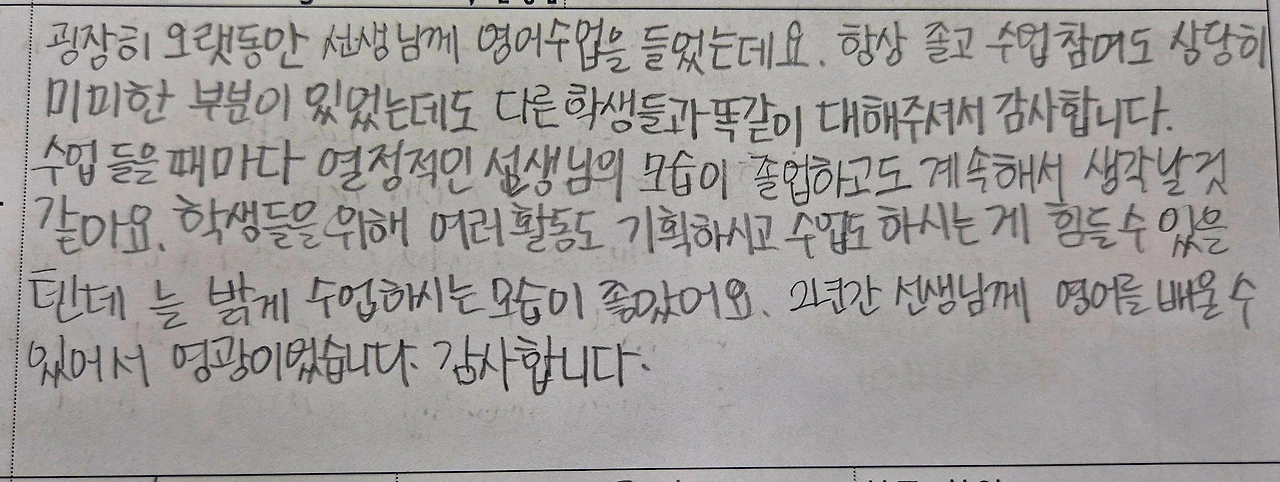 굉장히 오랫동안 선생님께 영어수업을 들었는데요. 항상 졸고 수업 참여도 상당히
미미한 부분이 있었는데도 다른 학생들과 똑같이 대해주셔서 감사합니다.
수업 들을 때마다 열정적인 선생님의 모습이 졸업하고도 계속해서 생각날 것
같아요. 학생들을 위해 여러 활동도 기획하시고 수업도 하시는 게 힘들 수 있을
텐데 늘 밝게 수업하시는 모습이 좋았어요. 2년간 선생님께 영어를 배울 수
있어서 영광이었습니다. 감사합니다.